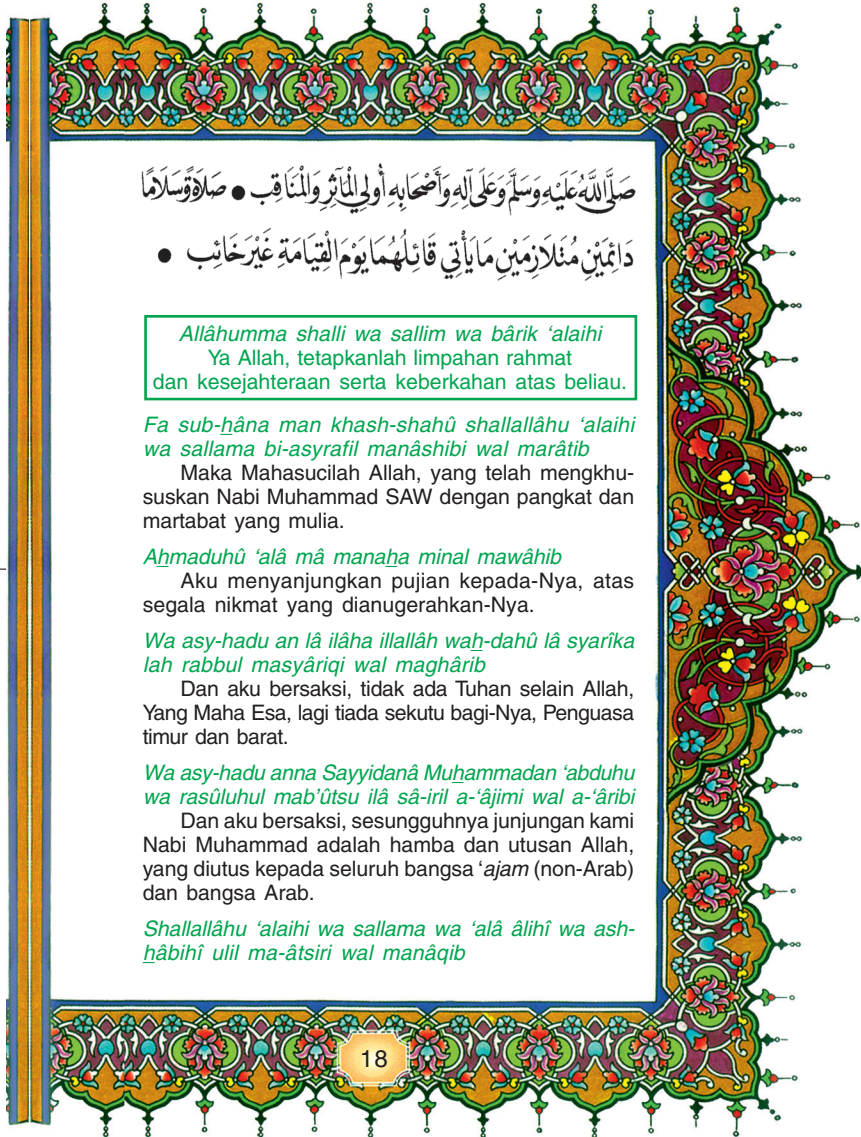 صَلَّى اللهُ عَلَيْهِ وَسَلَّمَ وَعَلَى آلِهِ وَأَصْحَابِهِ أُولِي الْمَآثِرِ وَالْمَنَاقِب ● صَلَاةً وَسَلَامًا
دَائِمَيْنِ مُتَلَازِمَيْنِ مَا يَأْتِي قَائِلُهُمَا يَوْمَ الْقِيَامَةِ غَيْرَ خَائِب ●
Allâhumma shalli wa sallim wa bârik ‘alaihi
Ya Allah, tetapkanlah limpahan rahmat
dan kesejahteraan serta keberkahan atas beliau.
Fa sub-h̲âna man khash-shahû shallallâhu ‘alaihi
wa sallama bi-asyrafil manâshibi wal marâtib
Maka Mahasucilah Allah, yang telah mengkhu-
suskan Nabi Muhammad SAW dengan pangkat dan
martabat yang mulia.
Ah̲maduhû ‘alâ mâ manah̲a minal mawâhib
Aku menyanjungkan pujian kepada-Nya, atas
segala nikmat yang dianugerahkan-Nya.
Wa asy-hadu an lâ ilâha illallâh wah̲-dahû lâ syarîka
lah rabbul masyâriqi wal maghârib
Dan aku bersaksi, tidak ada Tuhan selain Allah,
Yang Maha Esa, lagi tiada sekutu bagi-Nya, Penguasa
timur dan barat.
Wa asy-hadu anna Sayyidanâ Muh̲ammadan ‘abduhu
wa rasûluhul mab’ûtsu ilâ sâ-iril a-‘âjimi wal a-‘âribi
Dan aku bersaksi, sesungguhnya junjungan kami
Nabi Muhammad adalah hamba dan utusan Allah,
yang diutus kepada seluruh bangsa ‘ajam (non-Arab)
dan bangsa Arab.
Shallallâhu ‘alaihi wa sallama wa ‘alâ âlihî wa ash-
h̲âbihî ulil ma-âtsiri wal manâqib
18